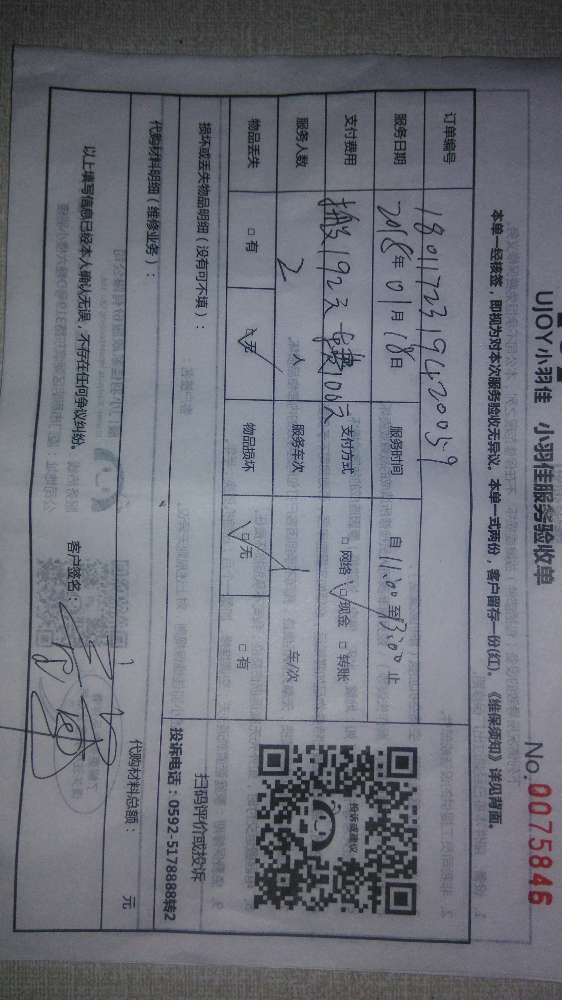 UJOY小羽佳 小羽佳服务验收单
No.0075846
本单一经核签，即视为对本次服务验收无异议。本单一式两份，客户留存一份(红)。《维保须知》详见背面。
订单编号 18011723194420059
服务日期 2018年01月18日 服务时间 自11:00至13:00止
支付费用 搬运192元 车费100元 支付方式 □网络 ☑现金 □转账
服务人数 2人 服务车次 1 车/次
物品丢失 □有 ☑无 物品损坏 ☑无 □有
损坏或丢失物品明细（没有可不填）：
投诉或建议
扫码评价或投诉
投诉电话：0592-5178888转2
代购材料明细（维修业务）：
代购材料总额： 元
以上填写信息已经本人确认无误，不存在任何争议纠纷。
客户签名：